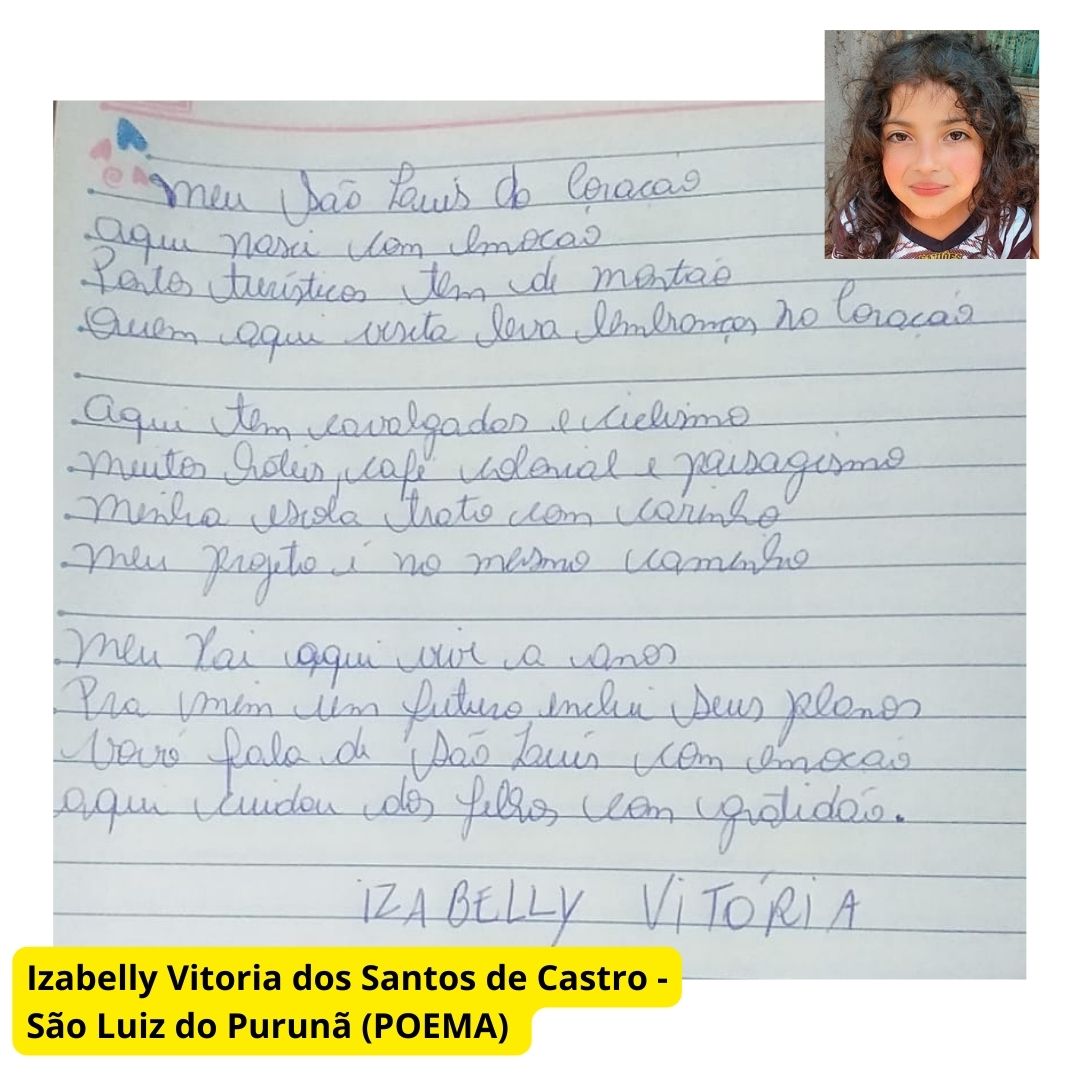 Meu São Luis do Coração
aqui nasci com Emoção
Pontos turísticos tem de montão
Quem aqui visita leva lembranças no Coração
aqui tem cavalgadas e ciclismo
muitos hóteis, café colonial e paisagismo
minha escola trato com carinho
meu projeto é no mesmo caminho
Meu Pai aqui vive a anos
Pra mim um futuro, inclui seus planos
Vovó fala de São Luis com emoção
aqui cuidou dos filhos com gratidão.
IZABELLY VITÓRIA
Izabelly Vitoria dos Santos de Castro -
São Luiz do Purunã (POEMA)